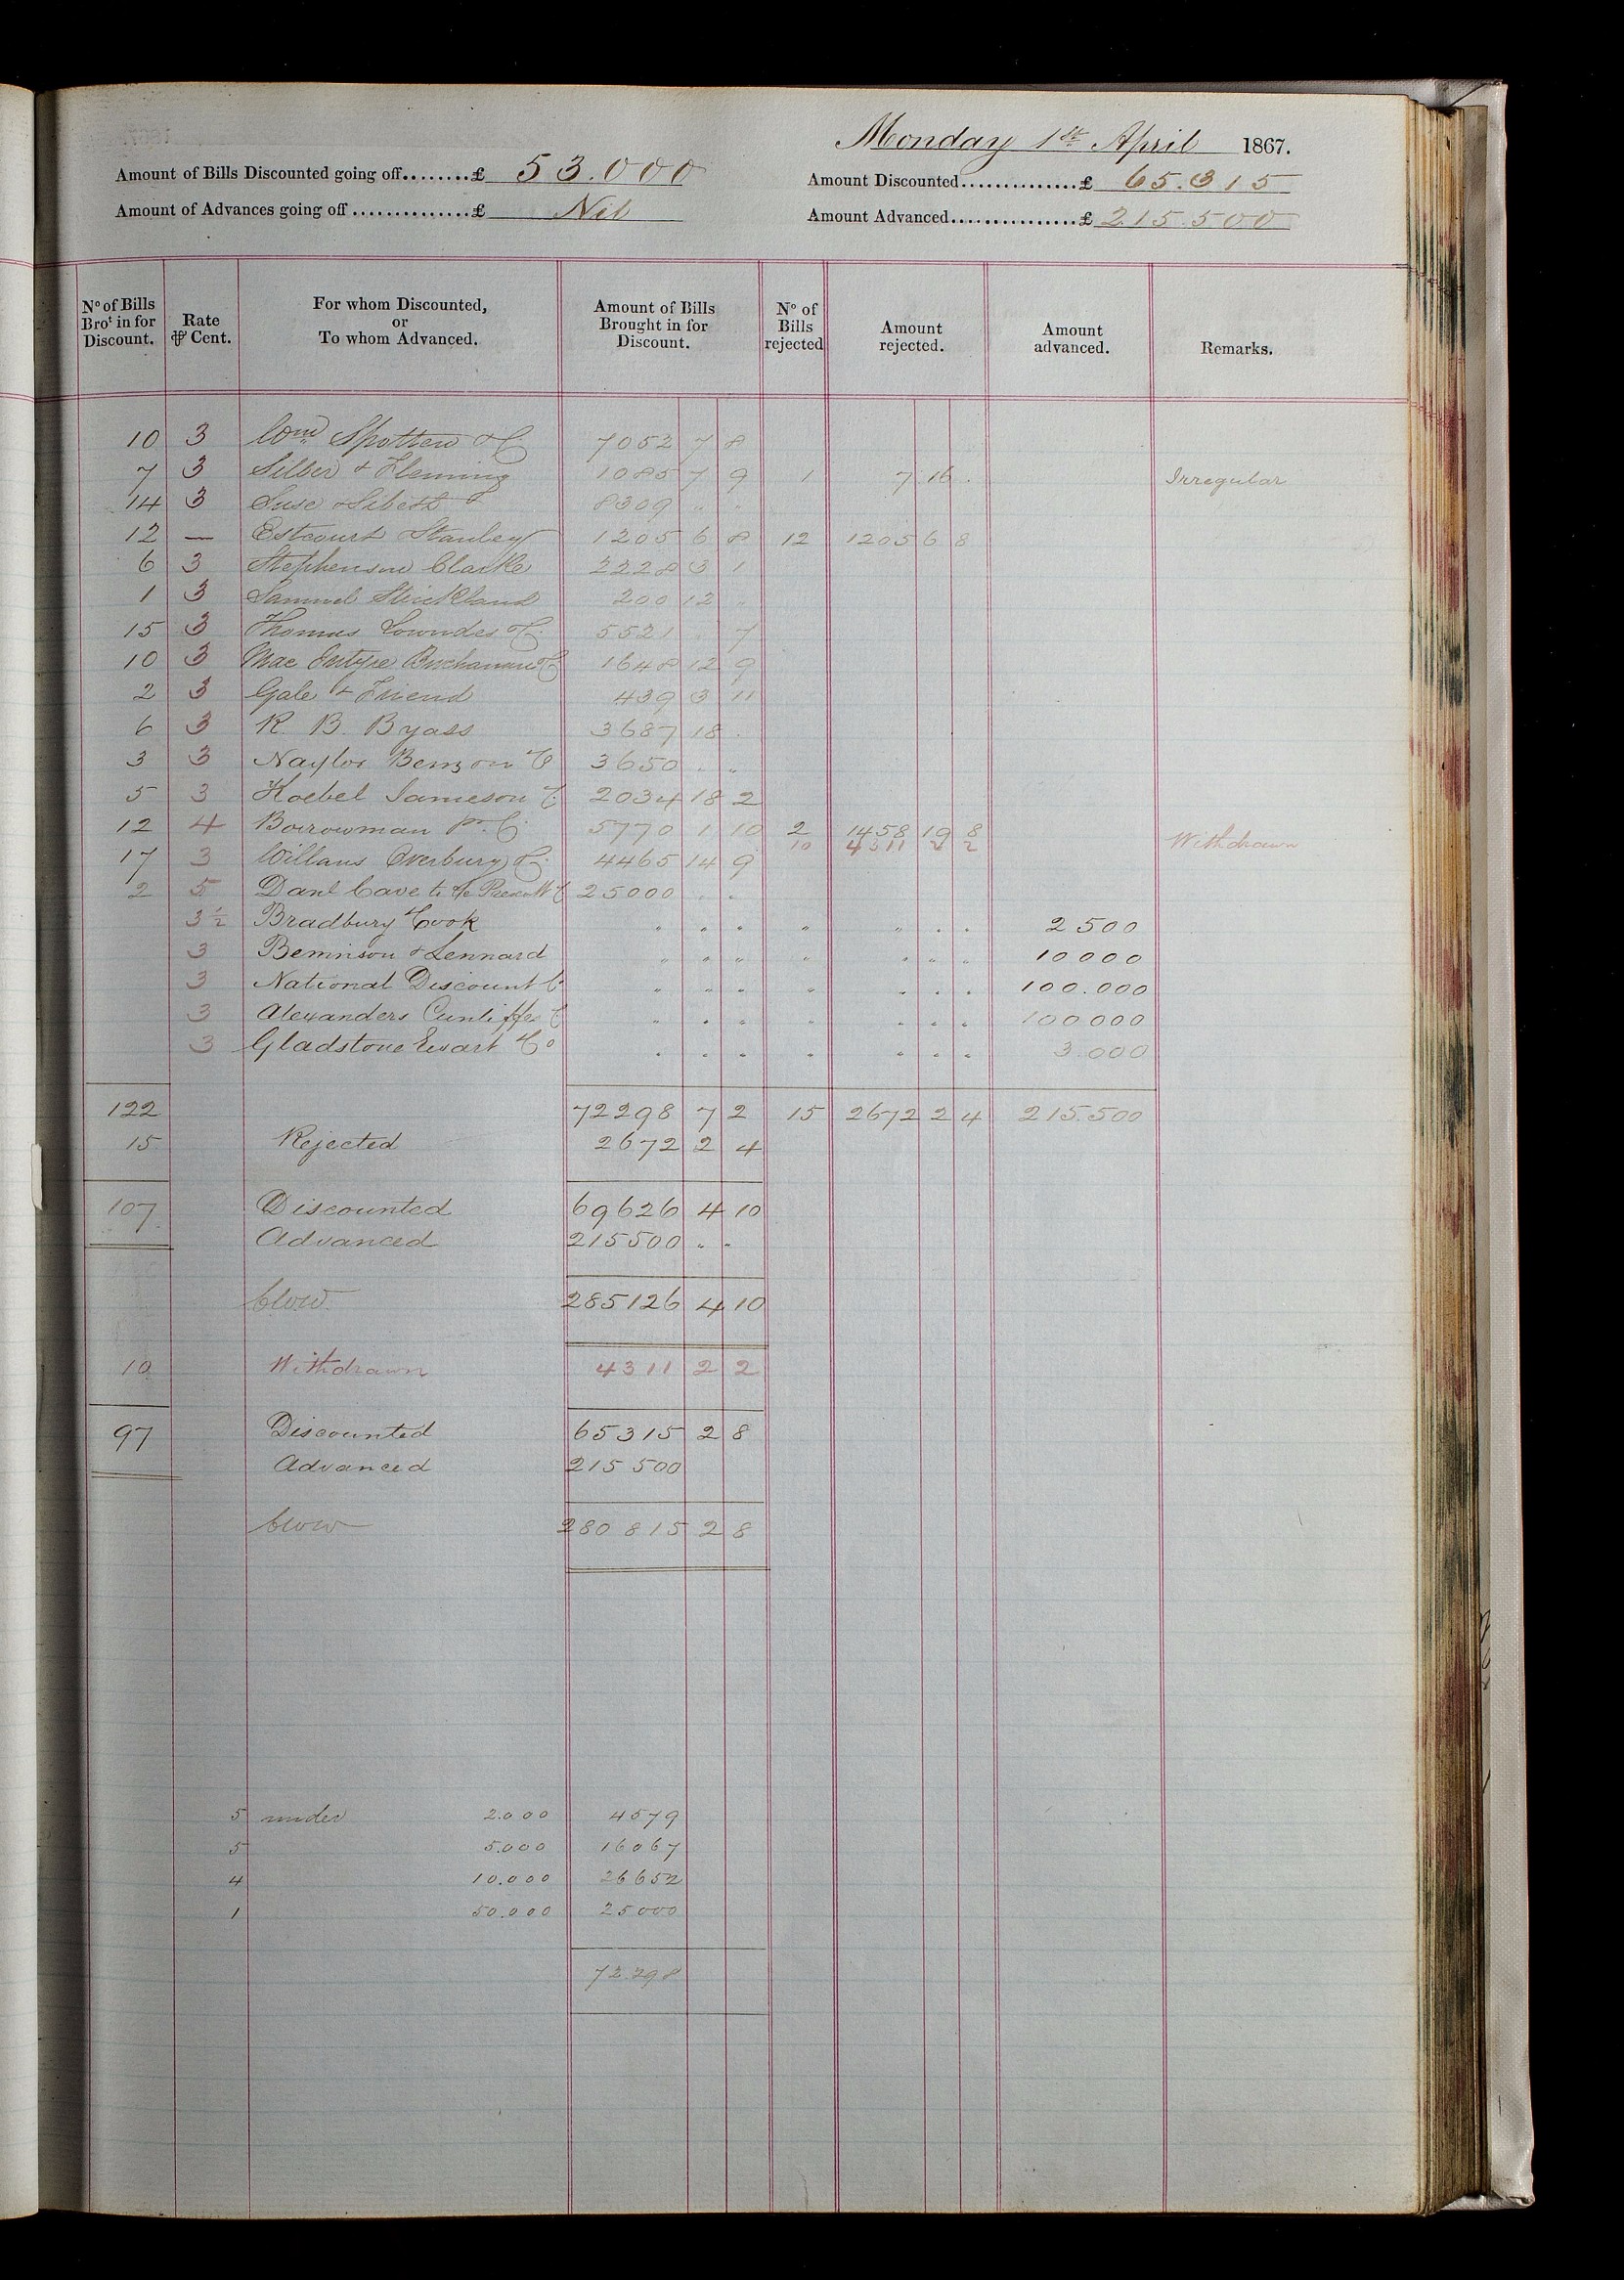 Monday 1st April 1867.
Amount of Bills Discounted going off........£ 53.000
Amount Discounted..............£ 65.315
Amount of Advances going off..............£ Nil
Amount Advanced...............£ 215.500
No of Bills Brot in for Discount. Rate ⅌ Cent. For whom Discounted, or To whom Advanced. Amount of Bills Brought in for Discount. No of Bills rejected Amount rejected. Amount advanced. Remarks.
10 3 Wm Spotten & C 7052 7 8
7 3 Silber & Fleming 1085 7 9 1 7 16 . Irregular
14 3 Suse & Sibeth 8309 " "
12 — Estcourt Stanley 1205 6 8 12 1205 6 8
6 3 Stephenson Clarke 2228 3 1
1 3 Samuel Strickland 200 12 "
15 3 Thomas Lowndes & C. 5521 " 7
10 3 Mac Intyre Buchanan & C 1648 12 9
2 3 Gale & Friend 439 3 11
6 3 R. B. Byass 3687 18 .
3 3 Naylor Benzon & C 3650 . "
5 3 Koebel Jameson & C 2034 18 2
12 4 Borrowman & C. 5770 1 10 2 1458 19 8
10 4311 2 2 Withdrawn
17 3 Willans Overbury & C. 4465 14 9
2 5 Danl Cave 25000 . .
3½ Bradbury & Cook " " " " " . . 2500
3 Bennison & Lennard " " " " " " " 10000
3 National Discount C " " " " . . . 100.000
3 Alexanders Cunliffes & C " . " " . . . 100000
3 Gladstone Ewart & Co . . . . . . . 3.000
122 72298 7 2 15 2672 2 4 215.500
15 Rejected 2672 2 4
107 Discounted 69626 4 10
Advanced 215500 " "
285126 4 10
10 Withdrawn 4311 2 2
97 Discounted 65315 2 8
Advanced 215 500
280 815 2 8
5 under 2.000 4579
5 5.000 16067
4 10.000 26652
1 50.000 25000
72.298